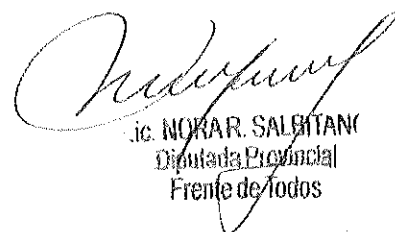 .ic. NORA R. SALBITAN
Diputada Provincial
Frente de Todos